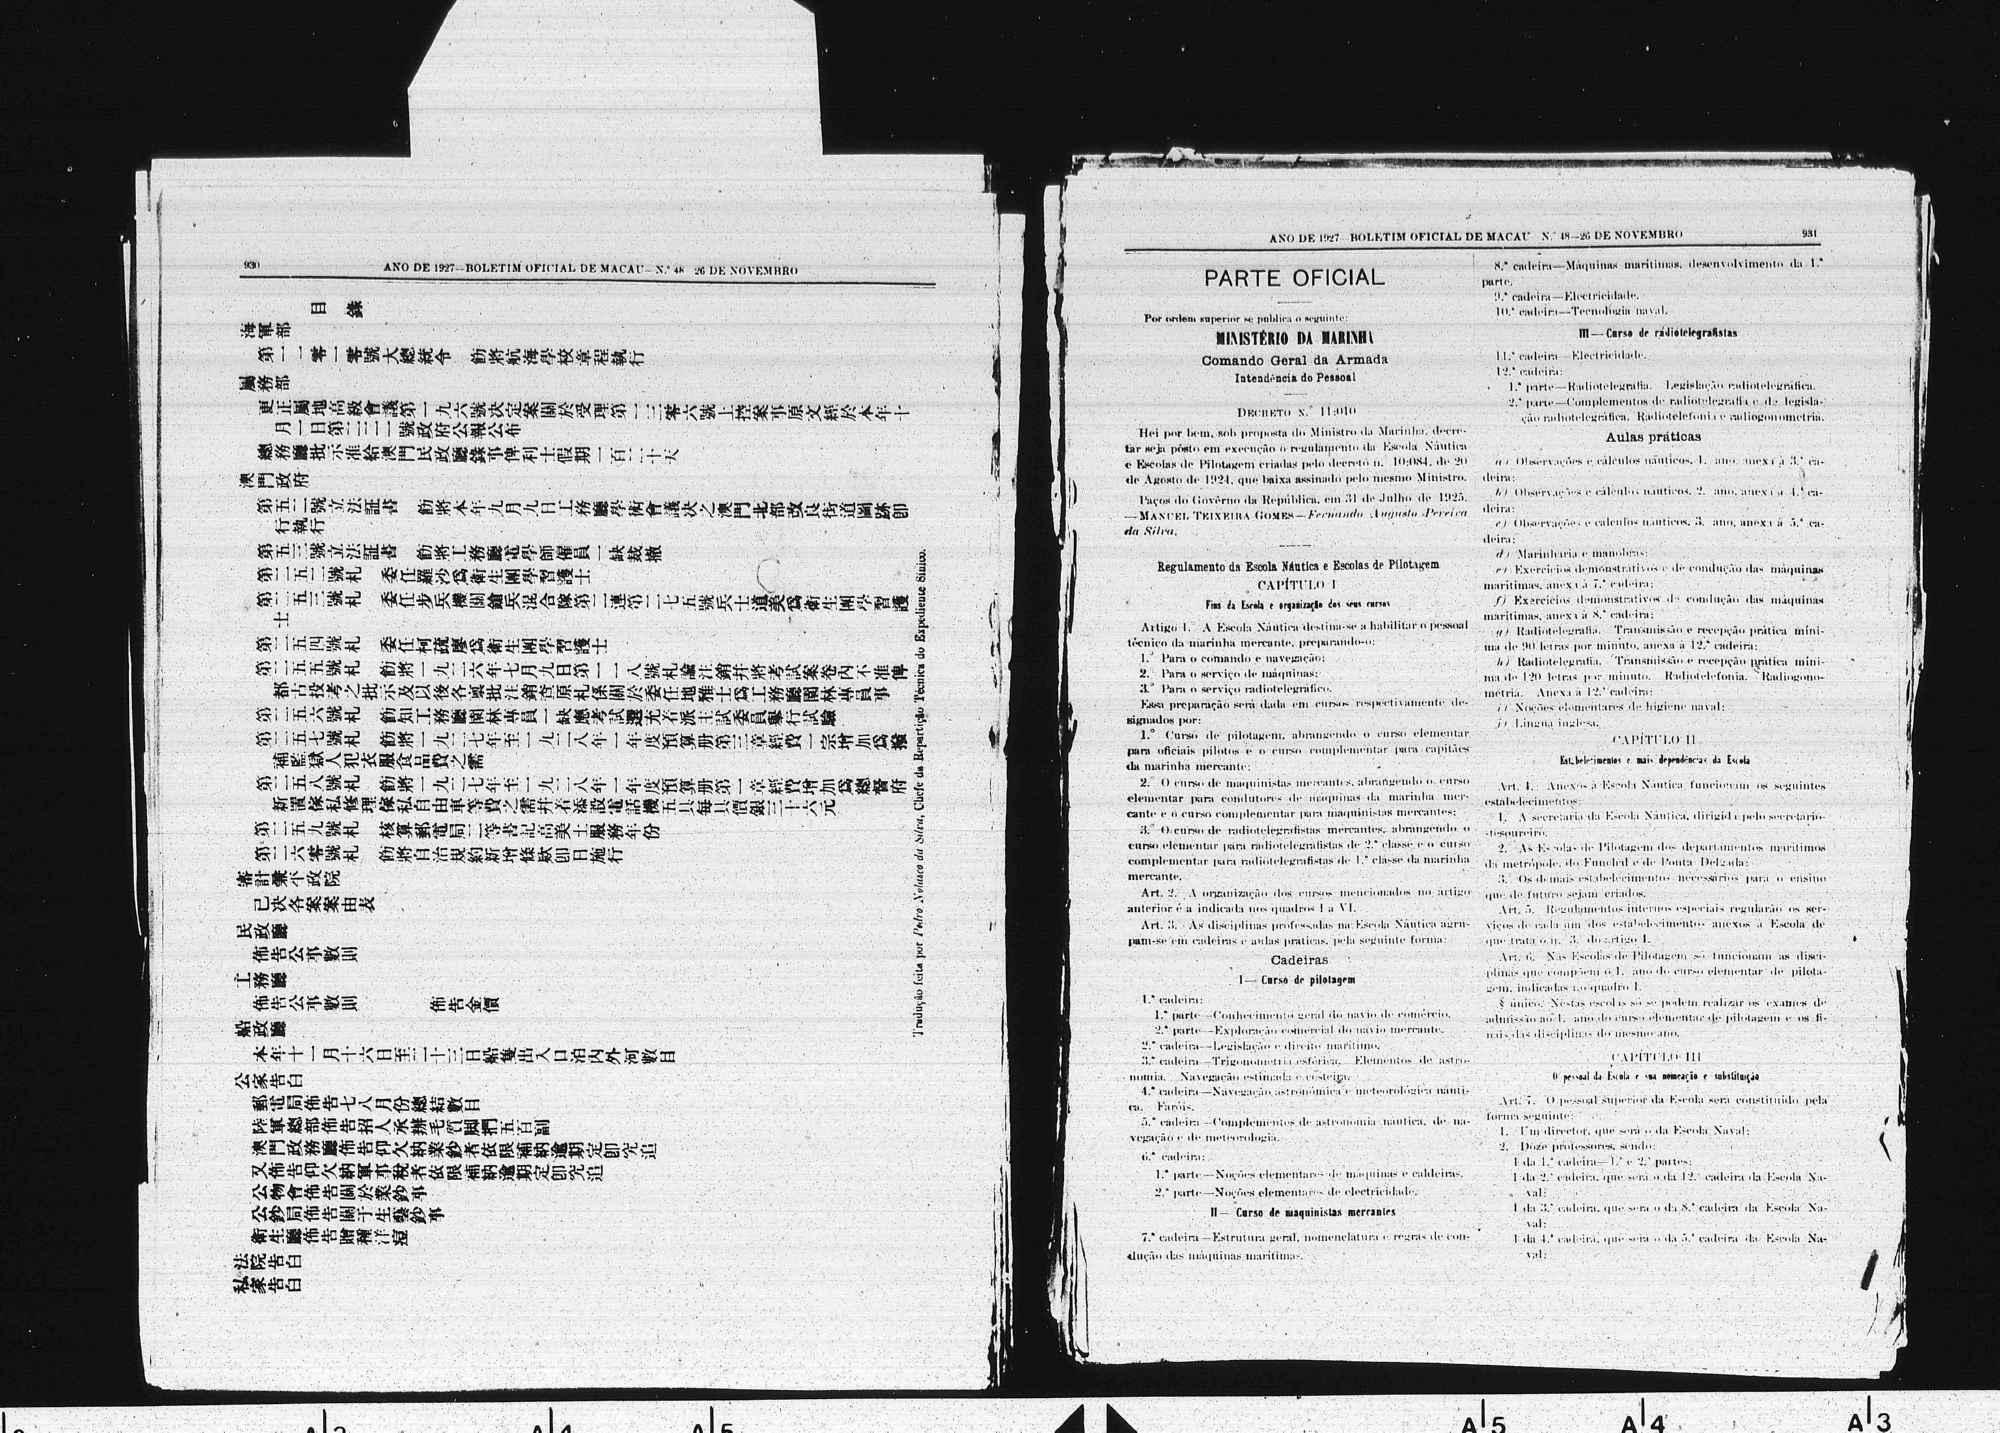 930
ANO DE 1927—BOLETIM OFICIAL DE MACAU—N.º 48 26 DE NOVEMBRO
目錄
海軍部
第一一零一零號大總統令 飭將航海學校章程執行
屬務部
更正屬地高級會議第一九六號決定案關於受理第一三零六號上控案事原文經於本年十
月一日第二二二號政府公報公布
總務廳批示准給澳門民政廳錄事俾利士假期一百二十天
澳門政府
第五二號立法証書 飭將本年九月九日工務廳學術會議決之澳門北部改良街道圖跡卽
行執行
第五三號立法証書 飭將工務廳電學師僱員一缺裁撤
第二五二號札 委任羅沙爲衛生團學習護士
第二五三號札 委任步兵機關鎗兵混合隊第二連第二七五號兵士道美爲衛生團學習護
士
第二五四號札 委任柯蔬廖爲衛生團學習護士
第二五五號札 飭將一九二六年七月九日第一一八號札諭注銷幷將考試案卷內不准俾
都古投考之批示及以後各稟批注銷查原札係關於委任地雅士爲工務廳園林專員事
第二五六號札 飭知工務廳園林專員一缺應考試選充着派主試委員舉行試驗
第二五七號札 飭將一九二七年至一九二八年一年度預算册第三章經費一宗增加爲撥
補監獄人犯衣服食品費之需
第二五八號札 飭將一九二七年至一九二八年一年度預算册第一章經費增加爲總督府
新置傢私修理傢私自由車等費之需幷着添設電話機五具每具價銀三十六元
第二五九號札 核算郵電局二等書記高美士服務年份
第二六零號札 飭將自治規約新增條欵卽日施行
審計兼平政院
已决各案案由表
民政廳
佈告公事數則
工務廳
佈告公事數則 佈告金價
船政廳
本年十一月十六日至二十三日船隻出入口泊內外河數目
公家告白
郵電局佈告七八月份總結數目
陸軍總部佈告招人承辦毛質脚捫五百副
澳門政務廳佈告仰欠納業鈔者依限補納逾期定卽究追
又佈告仰欠納軍事稅者依限補納逾期定卽究追
公物會佈告關於業鈔事
公鈔局佈告關于生藝鈔事
衛生廳佈告贈種洋痘
法院告白
私家告白
Tradução feita por Pedro Nolasco da Silva, Chefe da Repartição Técnica do Expediente Sínico.
ANO DE 1927—BOLETIM OFICIAL DE MACAU N.º 48—26 DE NOVEMBRO
931
PARTE OFICIAL
Por ordem superior se publica o seguinte:
MINISTÉRIO DA MARINHA
Comando Geral da Armada
Intendência do Pessoal
DECRETO N.º 11:010
Hei por bem, sob proposta do Ministro da Marinha, decre-
tar seja pôsto em execução o regulamento da Escola Náutica
e Escolas de Pilotagem criadas pelo decreto n. 10:084, de 20
de Agosto de 1924, que baixa assinado pelo mesmo Ministro.
Paços do Govêrno da República, em 31 de Julho de 1925.
—MANUEL TEIXEIRA GOMES—Fernando Augusto Pereira
da Silva.
Regulamento da Escola Náutica e Escolas de Pilotagem
CAPÍTULO I
Fins da Escola e organização dos seus cursos
Artigo 1.º A Escola Náutica destina-se a habilitar o pessoal
técnico da marinha mercante, preparando-o:
1.º Para o comando e navegação;
2.º Para o serviço de máquinas;
3.º Para o serviço radiotelegráfico.
Essa preparação será dada em cursos respectivamente de-
signados por:
1.º Curso de pilotagem, abrangendo o curso elementar
para oficiais pilotos e o curso complementar para capitães
da marinha mercante;
2.º O curso de maquinistas mercantes, abrangendo o curso
elementar para condutores de máquinas da marinha mer-
cante e o curso complementar para maquinistas mercantes;
3.º O curso de radiotelegrafistas mercantes, abrangendo o
curso elementar para radiotelegrafistas de 2.ª classe e o curso
complementar para radiotelegrafistas de 1.ª classe da marinha
mercante.
Art. 2. A organização dos cursos mencionados no artigo
anterior é a indicada nos quadros I a VI.
Art. 3. As disciplinas professadas na Escola Náutica agru-
pam-se em cadeiras e aulas práticas, pela seguinte forma:
Cadeiras
I— Curso de pilotagem
1.ª cadeira:
1.ª parte—Conhecimento geral do navio de comércio.
2.ª parte—Exploração comercial do navio mercante.
2.ª cadeira—Legislação e direito marítimo.
3.ª cadeira—Trigonometria esférica. Elementos de astro-
nomia. Navegação estimada e costeira.
4.ª cadeira—Navegação astronómica e meteorológica náuti-
ca. Faróis.
5.ª cadeira—Complementos de astronomia náutica, de na-
vegação e de meteorologia.
6.ª cadeira:
1.ª parte—Noções elementares de máquinas e caldeiras.
2.ª parte—Noções elementares de electricidade.
II— Curso de maquinistas mercantes
7.ª cadeira—Estrutura geral, nomenclatura e regras de con-
dução das máquinas marítimas.
8.ª cadeira—Máquinas marítimas, desenvolvimento da 1.ª
parte.
9.ª cadeira—Electricidade.
10.ª cadeira—Tecnologia naval.
III—Curso de rádiotelegrafistas
11.ª cadeira—Electricidade.
12.ª cadeira:
1.ª parte—Radiotelegrafia. Legislação radiotelegráfica.
2.ª parte—Complementos de radiotelegrafia e de legisla-
ção radiotelegráfica. Radiotelefonia e radiogonometria.
Aulas práticas
a) Observações e cálculos náuticos, 1. ano, anexa à 3.ª ca-
deira;
b) Observações e cálculos náuticos, 2. ano, anexa à 4.ª ca-
deira;
c) Observações e cálculos náuticos, 3. ano, anexa à 5.ª ca-
deira;
d) Marinharia e manobras;
e) Exercícios demonstrativos e de condução das máquinas
marítimas, anexa à 7.ª cadeira;
f) Exercícios demonstrativos de condução das máquinas
marítimas, anexa à 8.ª cadeira;
g) Radiotelegrafia. Transmissão e recepção prática míni-
ma de 90 letras por minuto, anexa à 12.ª cadeira;
h) Radiotelegrafia. Transmissão e recepção prática míni-
ma de 120 letras por minuto. Radiotelefonia. Radiogono-
metria. Anexa à 12.ª cadeira;
i) Noções elementares de higiene naval;
j) Língua inglesa.
CAPÍTULO II
Estabelecimentos e mais dependências da Escola
Art. 4. Anexos à Escola Náutica funcionam os seguintes
estabelecimentos:
1. A secretaria da Escola Náutica, dirigida pelo secretário-
-tesoureiro.
2. As Escolas de Pilotagem dos departamentos marítimos
da metrópole, do Funchal e de Ponta Delgada;
3. Os demais estabelecimentos necessários para o ensino
que de futuro sejam criados.
Art. 5. Regulamentos internos especiais regularão os ser-
viços de cada um dos estabelecimentos anexos à Escola de
que trata o n. 3. do artigo 4.
Art. 6. Nas Escolas de Pilotagem só funcionam as disci-
plinas que compõem o 1. ano do curso elementar de pilota-
gem, indicadas no quadro I.
§ único. Nestas escolas só se podem realizar os exames de
admissão ao 1. ano do curso elementar de pilotagem e os fi-
nais das disciplinas do mesmo ano.
CAPÍTULO III
O pessoal da Escola e sua nomeação e substituição
Art. 7. O pessoal superior da Escola será constituído pela
forma seguinte:
1. Um director, que será o da Escola Naval;
2. Doze professores, sendo:
1 da 1.ª cadeira—1.ª e 2.ª partes;
1 da 2.ª cadeira, que será o da 12.ª cadeira da Escola Na-
val;
1 da 3.ª cadeira, que será o da 8.ª cadeira da Escola Na-
val;
1 da 4.ª cadeira, que será o da 5.ª cadeira da Escola Na-
val;
A 5
A 4
A 3